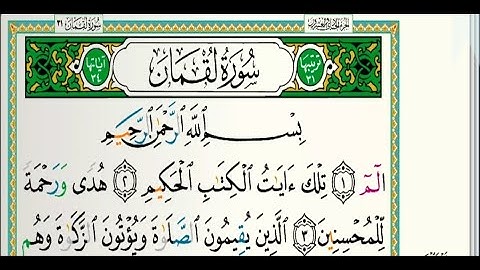 سُورَةُ لُقْمَان ٣١
الجزء الحادي والعشرون
ترتيبها ٣١
سُورَةُ لُقْمَانَ
آياتها ٣٤
بِسْمِ ٱللَّهِ ٱلرَّحْمَٰنِ ٱلرَّحِيمِ
الٓمٓ ۝١ تِلْكَ ءَايَٰتُ ٱلْكِتَٰبِ ٱلْحَكِيمِ ۝٢ هُدًى وَرَحْمَةً
لِّلْمُحْسِنِينَ ۝٣ ٱلَّذِينَ يُقِيمُونَ ٱلصَّلَوٰةَ وَيُؤْتُونَ ٱلزَّكَوٰةَ وَهُم